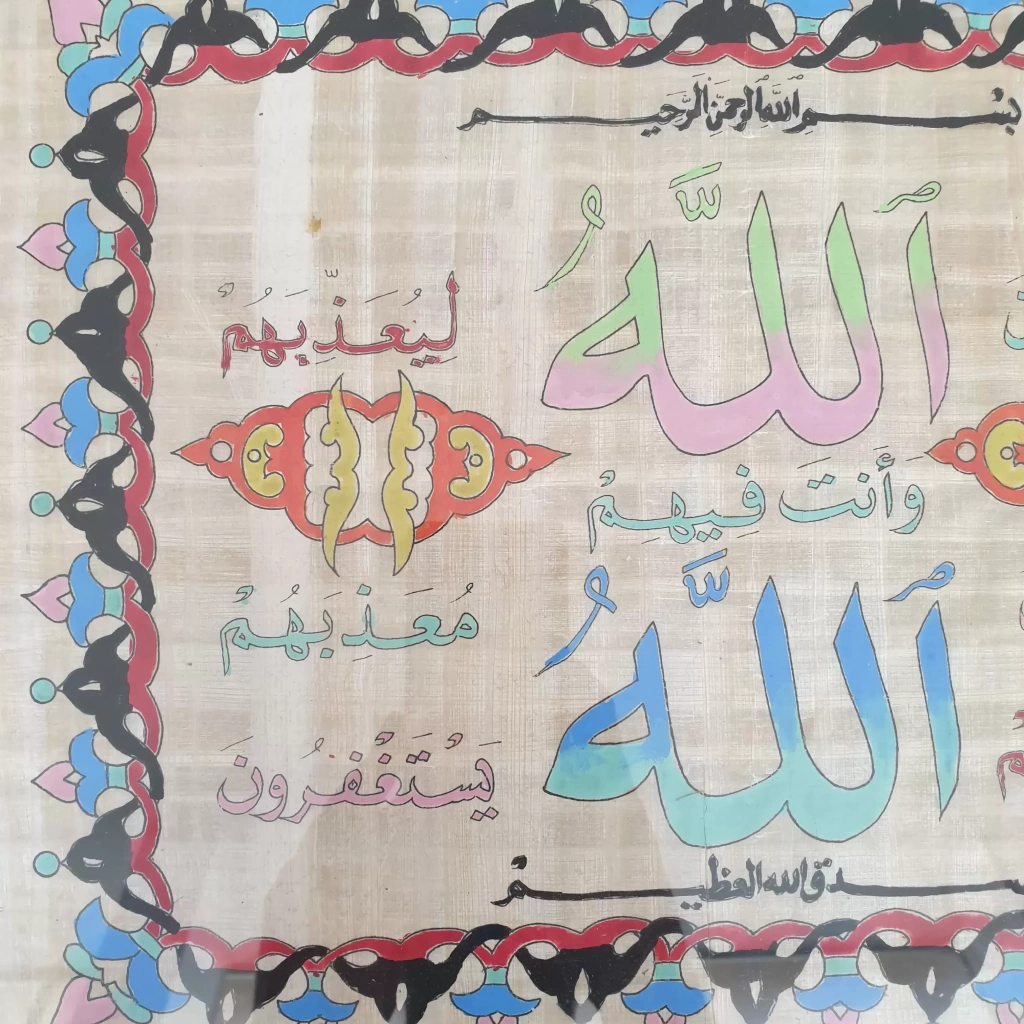 بِسْمِ اللَّهِ الرَّحْمَنِ الرَّحِيمِ
اللَّهُ لِيُعَذِّبَهُمْ
وَأَنتَ فِيهِمْ
اللَّهُ مُعَذِبَهُمْ
يَسْتَغْفِرُونَ
ـدق الله العظيم